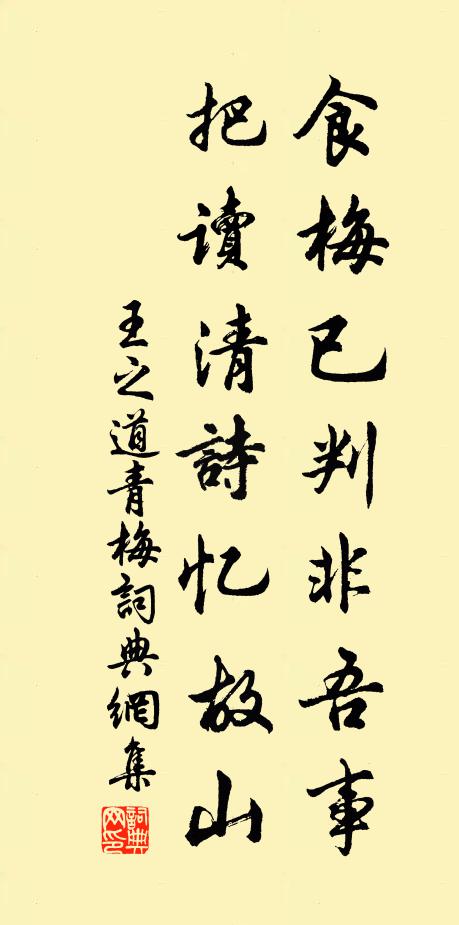 食梅已判非吾事
把读清詩忆故山
王之道青梅詞典網集
詞典网印